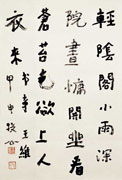 輕陰閣小雨深
院晝慵開坐看
蒼苔色欲上人
衣來
書事王維
甲申